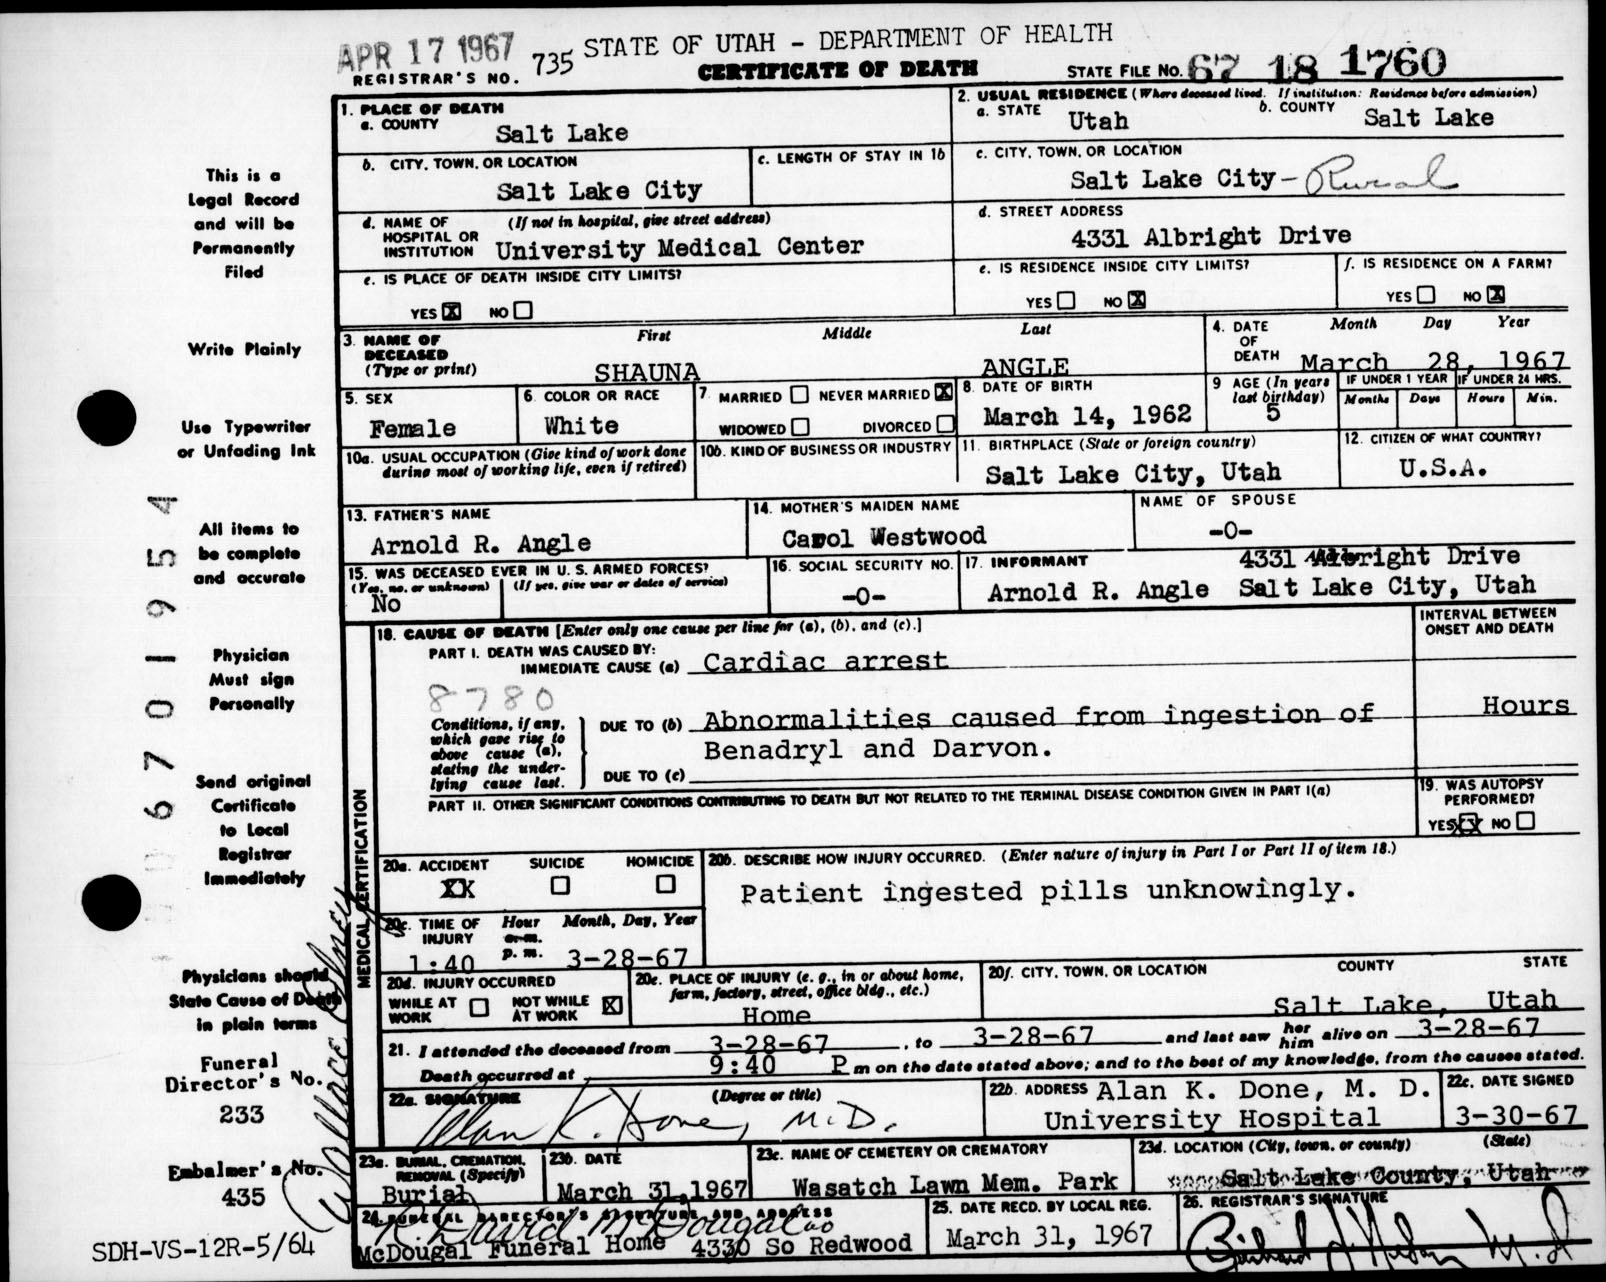 APR 17 1967
REGISTRAR'S NO. 735
STATE OF UTAH - DEPARTMENT OF HEALTH
CERTIFICATE OF DEATH
STATE FILE NO. 67 18 1760
1. PLACE OF DEATH
a. COUNTY
Salt Lake
2. USUAL RESIDENCE (Where deceased lived. If institution: Residence before admission)
a. STATE Utah
b. COUNTY Salt Lake
b. CITY, TOWN, OR LOCATION
Salt Lake City
c. LENGTH OF STAY IN 1b
c. CITY, TOWN, OR LOCATION
Salt Lake City - Rural
d. NAME OF HOSPITAL OR INSTITUTION (If not in hospital, give street address)
University Medical Center
d. STREET ADDRESS
4331 Albright Drive
e. IS PLACE OF DEATH INSIDE CITY LIMITS?
YES X NO
e. IS RESIDENCE INSIDE CITY LIMITS?
YES NO X
f. IS RESIDENCE ON A FARM?
YES NO X
3. NAME OF DECEASED (Type or print)
First Middle Last
SHAUNA ANGLE
4. DATE OF DEATH
Month Day Year
March 28, 1967
5. SEX
Female
6. COLOR OR RACE
White
7. MARRIED NEVER MARRIED X
WIDOWED DIVORCED
8. DATE OF BIRTH
March 14, 1962
9. AGE (In years last birthday)
5
IF UNDER 1 YEAR
Months Days
IF UNDER 24 HRS.
Hours Min.
10a. USUAL OCCUPATION (Give kind of work done during most of working life, even if retired)
10b. KIND OF BUSINESS OR INDUSTRY
11. BIRTHPLACE (State or foreign country)
Salt Lake City, Utah
12. CITIZEN OF WHAT COUNTRY?
U.S.A.
13. FATHER'S NAME
Arnold R. Angle
14. MOTHER'S MAIDEN NAME
Carol Westwood
NAME OF SPOUSE
-0-
15. WAS DECEASED EVER IN U. S. ARMED FORCES?
(Yes, no, or unknown) (If yes, give war or dates of service)
No
16. SOCIAL SECURITY NO.
-0-
17. INFORMANT
4331 Albright Drive
Arnold R. Angle Salt Lake City, Utah
MEDICAL CERTIFICATION
18. CAUSE OF DEATH [Enter only one cause per line for (a), (b), and (c).]
INTERVAL BETWEEN ONSET AND DEATH
PART I. DEATH WAS CAUSED BY:
IMMEDIATE CAUSE (a) Cardiac arrest
8780
Conditions, if any, which gave rise to above cause (a), stating the underlying cause last.
DUE TO (b) Abnormalities caused from ingestion of
Hours
Benadryl and Darvon.
DUE TO (c)
PART II. OTHER SIGNIFICANT CONDITIONS CONTRIBUTING TO DEATH BUT NOT RELATED TO THE TERMINAL DISEASE CONDITION GIVEN IN PART I(a)
19. WAS AUTOPSY PERFORMED?
YES XX NO
20a. ACCIDENT SUICIDE HOMICIDE
XX
20b. DESCRIBE HOW INJURY OCCURRED. (Enter nature of injury in Part I or Part II of item 18.)
Patient ingested pills unknowingly.
20c. TIME OF INJURY
Hour Month, Day, Year
a. m.
1:40 p. m. 3-28-67
20d. INJURY OCCURRED
WHILE AT WORK NOT WHILE AT WORK X
20e. PLACE OF INJURY (e. g., in or about home, farm, factory, street, office bldg., etc.)
Home
20f. CITY, TOWN, OR LOCATION COUNTY STATE
Salt Lake, Utah
21. I attended the deceased from 3-28-67, to 3-28-67 and last saw her him alive on 3-28-67
Death occurred at 9:40 P m on the date stated above; and to the best of my knowledge, from the causes stated.
22a. SIGNATURE (Degree or title)
Alan K. Done, M.D.
22b. ADDRESS Alan K. Done, M. D.
University Hospital
22c. DATE SIGNED
3-30-67
23a. BURIAL, CREMATION, REMOVAL (Specify)
Burial
23b. DATE
March 31, 1967
23c. NAME OF CEMETERY OR CREMATORY
Wasatch Lawn Mem. Park
23d. LOCATION (City, town, or county) (State)
Salt Lake County, Utah
24. FUNERAL DIRECTOR'S SIGNATURE AND ADDRESS
R. David McDougal
McDougal Funeral Home 4330 So Redwood
25. DATE RECD. BY LOCAL REG.
March 31, 1967
26. REGISTRAR'S SIGNATURE
M.D
This is a
Legal Record
and will be
Permanently
Filed
Write Plainly
Use Typewriter
or Unfading Ink
All items to
be complete
and accurate
Physician
Must sign
Personally
Send original
Certificate
to Local
Registrar
Immediately
Physicians should
State Cause of Death
in plain terms
Funeral
Director's No.
233
Embalmer's No.
435
Wallace
SDH-VS-12R-5/64
0670 1954